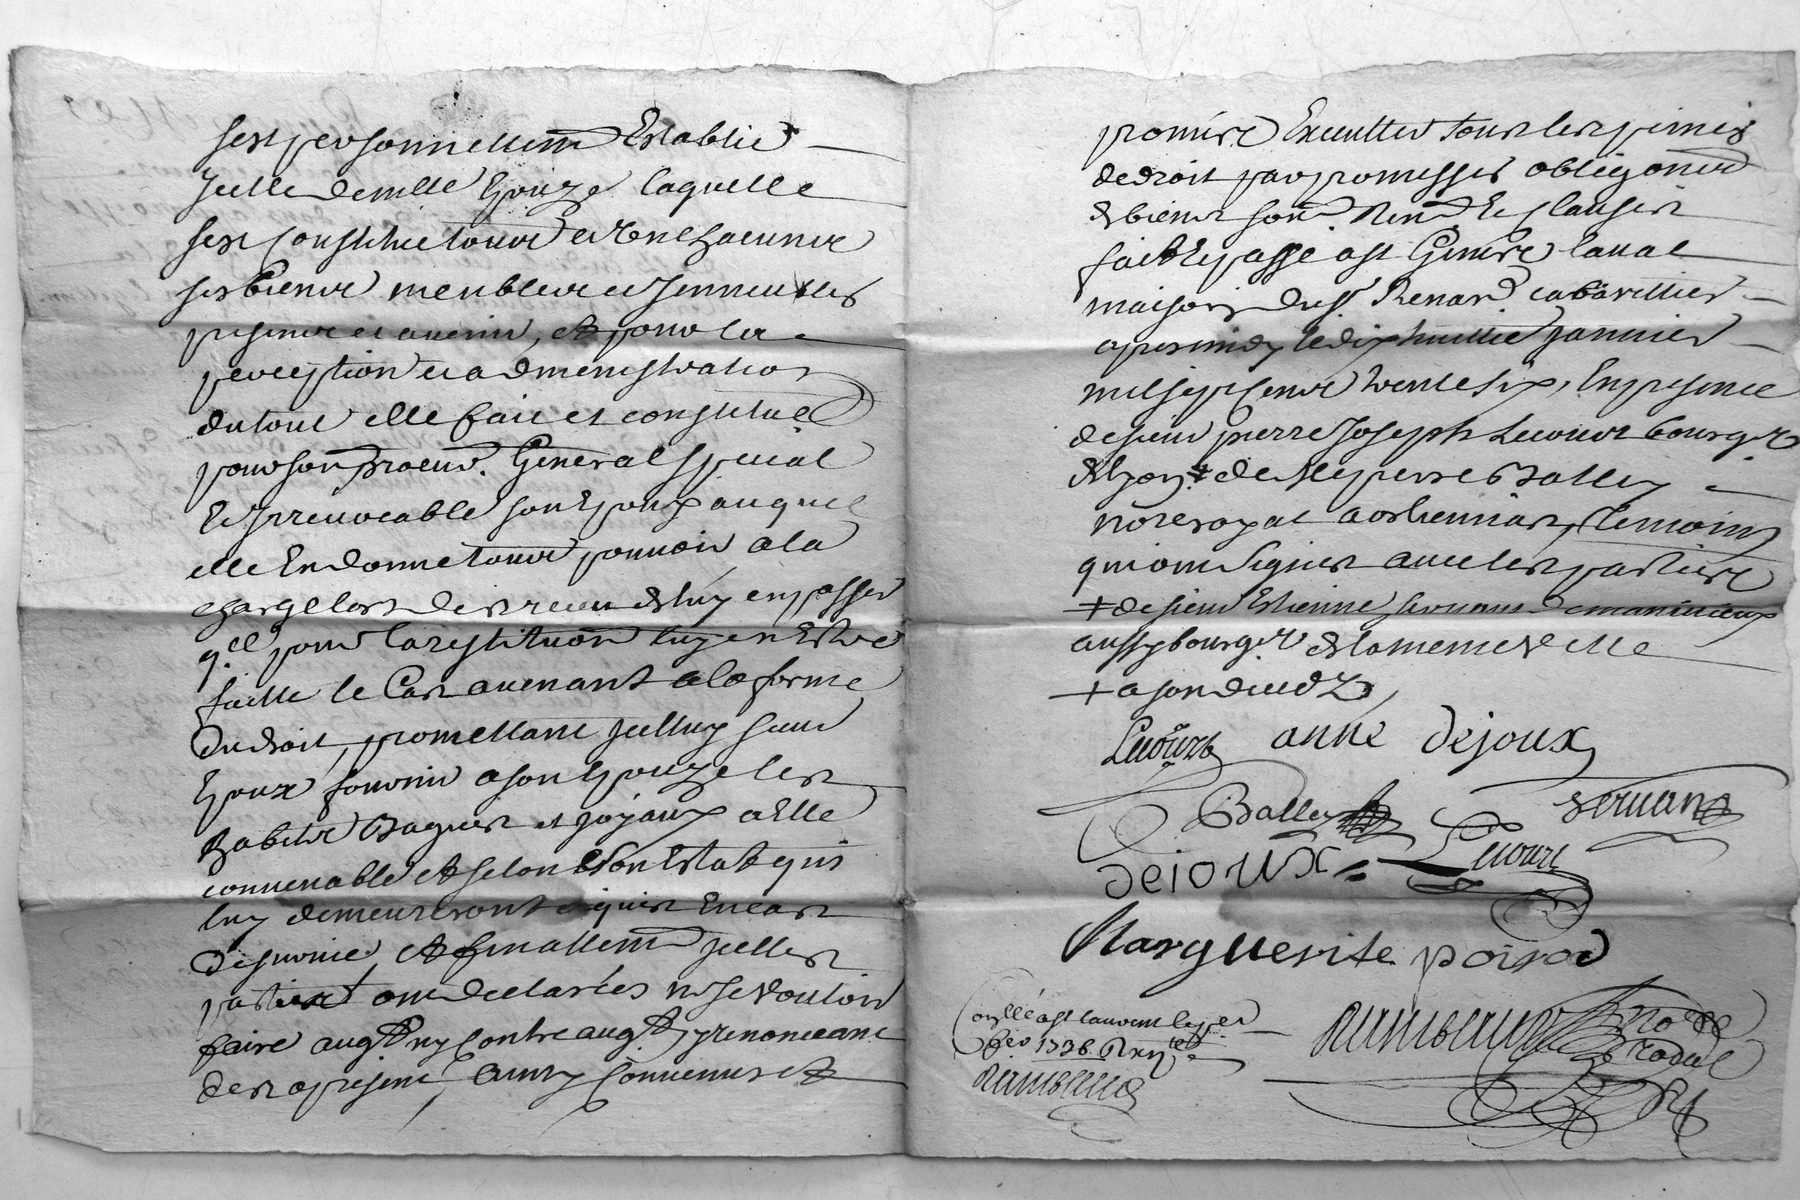 sest personnellemt Establie
Jcelle demlle Epouze laquelle
sest Constitué tous et
ses biens meubles et Jmmeubles
presents et avenir, et pour la
perception et administration
du tout elle fait et constitue
pour son procur. General special
Et Jrreuocable son Epoux auquel
elle En donne tout pouuoir a la
charge lors des receu de luy en passer
qce pour la restitution luy en Estre
faitte le Cas auenant a la forme
du droit, promettant Jcelluy sieur
Epoux fournir a son Epouze les
habits Bagues et joyaux a Elle
conuenable et selon son Estat qui
luy demeureront acquis En cas
de suruie, et finallemt jcelles
parties ont declarées ne se vouloir
faire augt ny contre augt, renonceant
des a present, Ainsy Conuenus et
promis Executter sous les peines
de droit par promesses obligons
de biens soum Renon Et clauses
fait et passé a st Genis laual
maison du sr Renard cabarettier
apres midy le dix huittie januier
mil sept cents trente six, En presence
de sieur pierre Joseph Lecourt bourgs
de lyon ‡ de Me pierre Balley
notre royal a orlienas, temoins
qui ont signés auec les parties
‡ de sieur Estienne seruant
aussy bourgs de la meme ville
+ a son
Lecourt anne dejoux
Balley seruant
dejoux Lecourt
Marguerite poirod
Conllé a st laurent le
1736. Rx